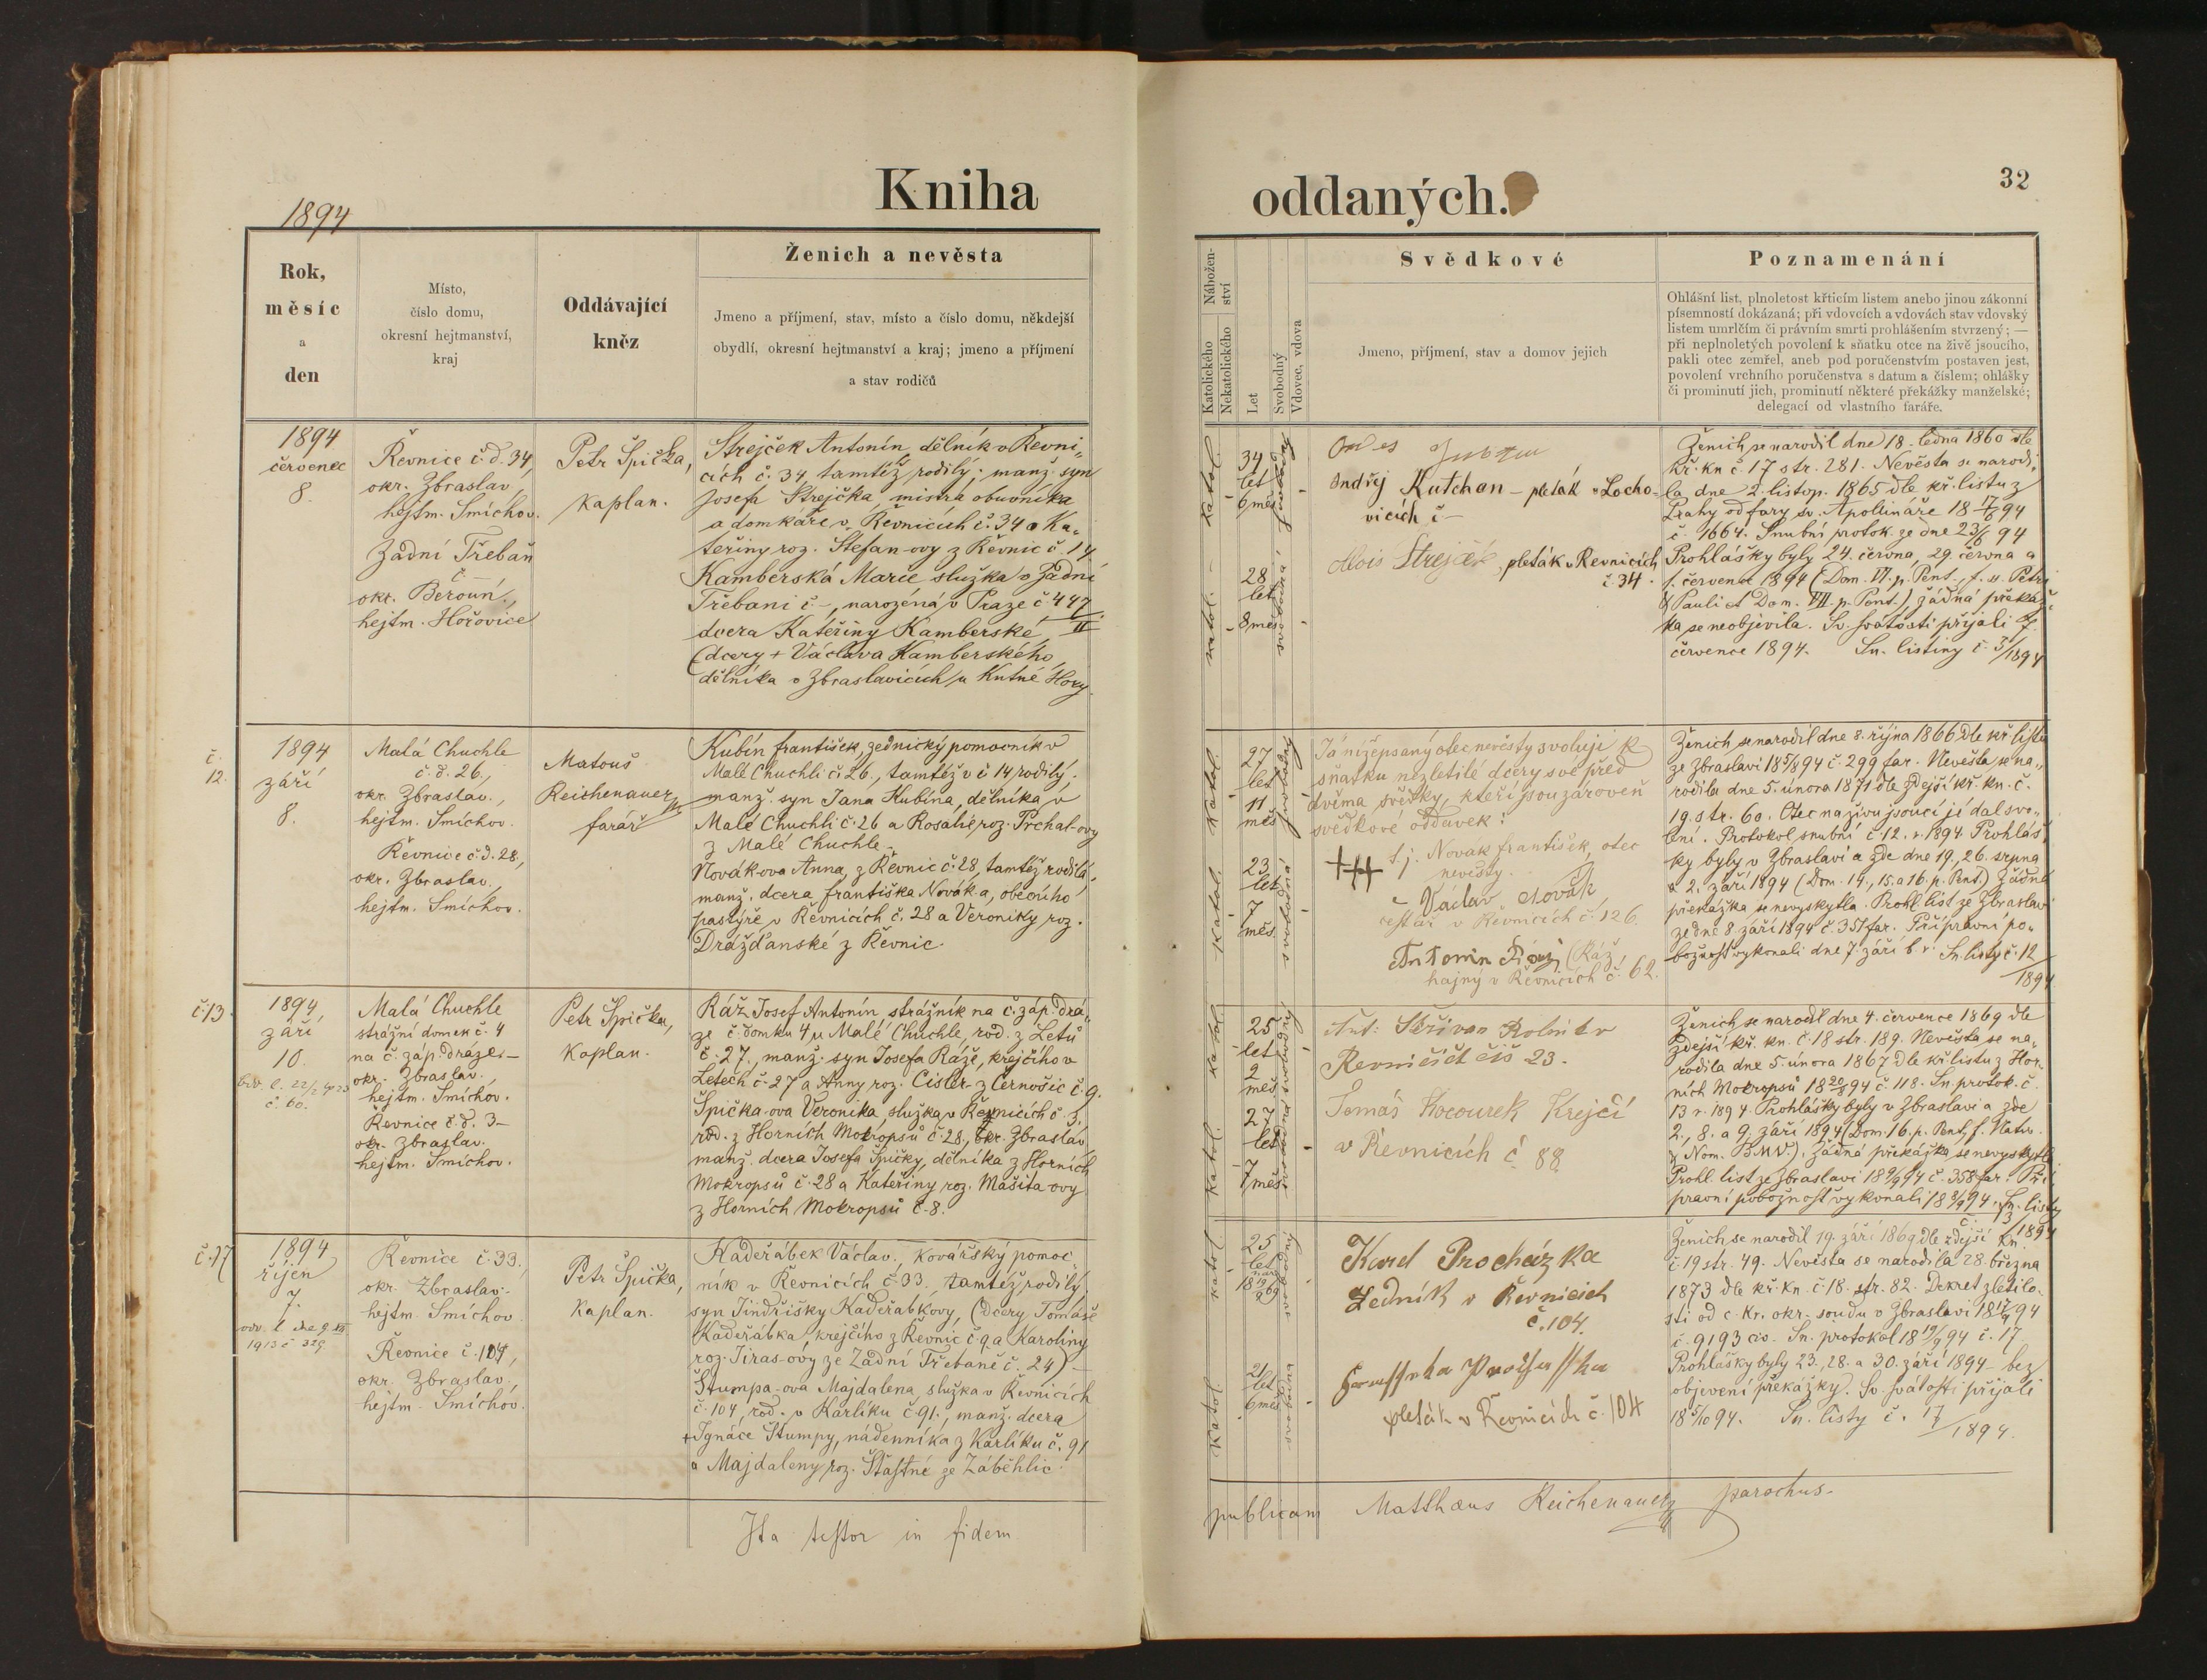 1894
Kniha
oddaných.
32
Rok,
měsíc
a
den
Místo,
číslo domu,
okresní hejtmanství,
kraj
Oddávající
kněz
Ženich a nevěsta
Jmeno a příjmení, stav, místo a číslo domu, někdejší
obydlí, okresní hejtmanství a kraj; jmeno a příjmení
a stav rodičů
Nábožen-
ství
Katolického
Nekatolického
Let
Svobodný
Vdovec, vdova
Svědkové
Jmeno, příjmení, stav a domov jejich
Poznamenání
Ohlášní list, plnoletost křticím listem anebo jinou zákonní
písemností dokázaná; při vdovcích a vdovách stav vdovský
listem umrlčím či právním smrti prohlášením stvrzený; —
při neplnoletých povolení k sňatku otce na živě jsoucího,
pakli otec zemřel, aneb pod poručenstvím postaven jest,
povolení vrchního poručenstva s datum a číslem; ohlášky
či prominutí jich, prominutí některé překážky manželské;
delegací od vlastního faráře.
1894
červenec
8.
Řevnice č.d. 34,
okr. Zbraslav
hejtm. Smíchov.
Zadní Třebaň
č. —
okr. Beroun,
hejtm. Hořovice
Petr Špička,
kaplan.
Strejček Antonín, dělník v Řevni-
cích č. 34, tamtéž rodilý; manž. syn
Josefa Strejčka, mistra obuvníka
a domkáře v Řevnicích č. 34 a Ka-
teřiny roz. Štefan-ovy z Řevnic č. 14
Kamberská Marie služka v Zadní
Třebani č –, narozená v Praze č 447/II
dcera Kateřiny Kamberské,
(dcery + Václava Kamberského,
dělníka v Zbraslavicích u Kutné Hory
katol.
34
let
6 měs
svobodný
katol.
28
let
8 měs
svobodná
Ondřej Kutchan – pleták v Locho-
vicích č –
Alois Strejček, pleták v Řevnicích
č 34.
Ženich se narodil dne 18. ledna 1860 dle
kř. kn č. 17 str. 281. Nevěsta se narodi-
la dne 2. listop. 1865 dle kř. listu z
Prahy od fary sv. Apollináře 18 17/4 94
č. 1664. Snubní protok. ze dne 23/6 94
Prohlášky byly 24. června, 29. června a
1. července 1894 (Dom. VI. p. Pent., f. ss. Petri
& Pauli et Dom. VII. p. Pent.) žádná překáž-
ka se neobjevila. Sv. svátosti přijali 7.
července 1894. Sn. listiny č. 3/1894
č.
12.
1894
září
8.
Malá Chuchle
č.d. 26,
okr. Zbraslav,
hejtm. Smíchov.
Řevnice č.d. 28,
okr. Zbraslav,
hejtm. Smíchov.
Matouš
Reichenauer,
farář
Kubín František, zednický pomocník v
Malé Chuchli č. 26., tamtéž v č 14 rodilý,
manž. syn Jana Kubína, dělníka v
Malé Chuchli č. 26 a Rosalie roz. Prchal-ovy
z Malé Chuchle.
Novák-ova Anna, z Řevnic č. 28, tamtéž rodilá,
manž. dcera Františka Novák-a, obecního
pastýře v Řevnicích č. 28 a Veroniky roz.
Drážďanské z Řevnic.
katol.
27
let
11
měs
svobodný
katol.
23
let
7
měs.
svobodná
Já nížepsaný otec nevěsty svoluji k
sňatku nezletilé dcery své před
dvěma svědky, kteří jsou zároveň
svědkové oddavek:
+++ t.j. Novák František, otec
nevěsty.
Václav Novák
cestář v Řevnicích č. 126.
Antonín Ráž (Ráž)
hajný v Řevnicích č. 62.
Ženich se narodil dne 8. října 1866 dle kř. listu
ze Zbraslavi 18 5/8 94 č. 299 far. Nevěsta se na-
rodila dne 5. února 1871 dle zdejší kř. kn. č.
19. str. 60. Otec na živu jsoucí jí dal svo-
lení. Protokol snubní č 12. r. 1894. Prohláš-
ky byly v Zbraslavi a zde dne 19., 26. srpna
a 2. září 1894 (Dom. 14., 15. a 16. p. Pent.) Žádná
překážka se nevyskytla. Prohl. list ze Zbraslavi
ze dne 8. září 1894 č. 357 far. Přípravní po-
božnost vykonali dne 7. září t. r. Sn. listy č. 12/1894
č. 13.
1894
září
10.
č. 60.
Malá Chuchle
strážní domek č. 4
na č. záp. dráze. –
okr. Zbraslav.
hejtm. Smíchov.
Řevnice č.d. 3 –
okr. Zbraslav.
hejtm. Smíchov.
Petr Špička,
kaplan.
Ráž Josef Antonín, strážník na č. záp. drá-
ze č. domku 4 u Malé Chuchle, rod. z Letů
č. 27., manž. syn Josefa Ráže, krejčího v
Letech č. 27 a Anny roz. Císler z Černošic č. 9.
Špička-ova Veronika, služka v Řevnicích č. 3,
rod. z Horních Mokropsů č. 28., okr. Zbraslav,
manž. dcera Josefa Špičky, dělníka z Horních
Mokropsů č. 28 a Kateřiny roz. Mašita-ovy
z Horních Mokropsů č. 8.
katol.
25
let
2
měs
svobodný
katol.
27
let
7 měs
svobodná
Ant: Skřivan Rolník v
Řevničích čís 23.
Tomáš Kocourek Krejčí
v Řevnicích č 88
Ženich se narodil dne 4. července 1869 dle
zdejší kř. kn. č. 18 str. 189. Nevěsta se na-
rodila dne 5. února 1867 dle kř. listu z Hor-
ních Mokropsů 18 20/8 94 č. 118. Sn. protok. č.
13 r. 1894. Prohlášky byly v Zbraslavi a zde
2., 8. a 9. září 1894 (Dom. 16. p. Pent., f. Nativ.
& Nom. B.M.V.). Žádná překážka se nevyskytla
Prohl. list ze Zbraslavi 18 9/9 94 č. 358 far. Pří-
pravní pobožnost vykonali 18 8/9 94. Sn. listy
č. 13/1894
č. 17
1894
říjen
7.
1913 č 329
Řevnice č. 33.,
okr. Zbraslav.
hejtm. Smíchov
Řevnice č. 104,
okr. Zbraslav,
hejtm. Smíchov.
Petr Špička,
kaplan.
Kadeřábek Václav, kovářský pomoc-
ník v Řevnicích č. 33, tamtéž rodilý,
syn Jindřišky Kadeřábkovy, (dcery Tomáše
Kadeřábka, krejčího z Řevnic č. 9 a Karoliny
roz. Jiras-ovy ze Zadní Třebaně č. 24) –
Štumpa-ova Majdalena, služka v Řevnicích
č. 104, rod. v Karlíku č. 91., manž. dcera
+ Ignáce Štumpy, nádenníka z Karlíku č. 91
a Majdaleny roz. Šťastné ze Záběhlic.
katol.
25
let
svobodný
katol.
21
let
6 měs
svobodná
Karel Procházka
Zedník v Řevnicích
č. 104.
pleták v Řevnicích č. 104
Ženich se narodil 19. září 1869 dle zdejší kn.
č. 19 str. 49. Nevěsta se narodila 28. března
1873 dle kř. kn. č. 18. str. 82. Dekret zletilo-
sti od c. kr. okr. soudu v Zbraslavi 18 17/9 94
č. 9193 civ. Sn. protokol 18 19/9 94 č. 17
Prohlášky byly 23., 28. a 30. září 1894 – bez
objevení překážky. Sv. svátosti přijali
18 5/10 94. Sn. listy č. 17/1894.
Ita testor in fidem
publicam Matthaeus Reichenauer parochus.